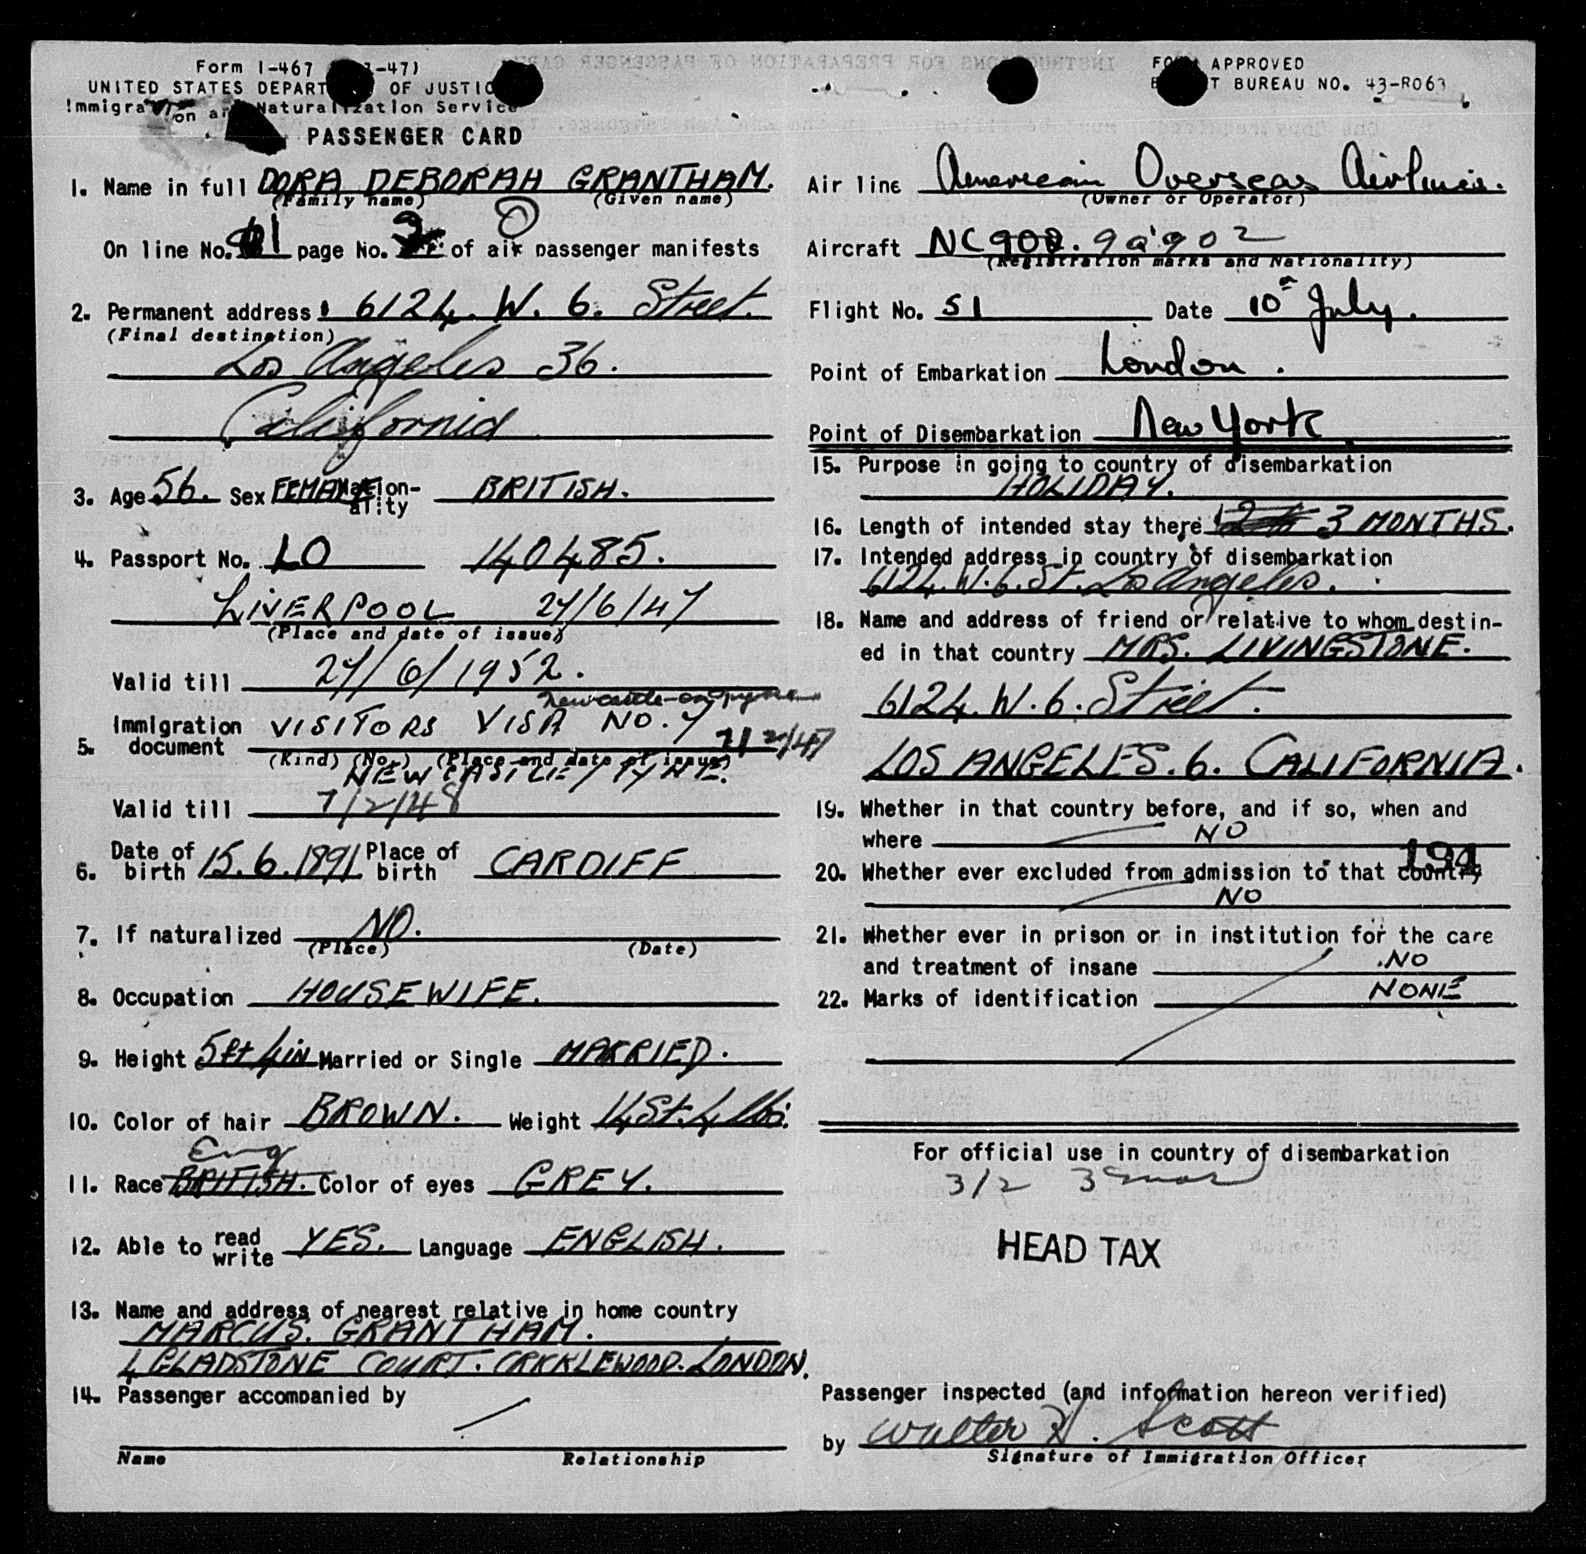 Form I-467 -47)
UNITED STATES DEPART OF JUSTIC
Immigration and Naturalization Service
PASSENGER CARD
1. Name in full DORA DEBORAH GRANTHAM.
(Family name) (Given name)
On line No. 11 page No. 3 of air passenger manifests
2. Permanent address 6124. W. 6. Street.
(Final destination)
Los Angeles 36.
California
3. Age 56. Sex FEMALE Nationality BRITISH.
4. Passport No. LO 140485.
LIVERPOOL 27/6/47
(Place and date of issue)
Valid till 27/6/1952.
Newcastle-on-Tyne
5. Immigration document VISITORS VISA NO. 7 7/2/47
(Kind) (No.) (Place and date of issue)
NEWCASTLE / TYNE.
Valid till 7/2/48
6. Date of birth 15.6.1891 Place of birth CARDIFF
7. If naturalized NO.
(Place) (Date)
8. Occupation HOUSEWIFE.
9. Height 5ft 4in Married or Single MARRIED.
10. Color of hair BROWN. Weight 14 St. 4 lbs.
Eng
11. Race BRITISH. Color of eyes GREY.
12. Able to read write YES. Language ENGLISH.
13. Name and address of nearest relative in home country
MARCUS. GRANTHAM.
4 GLADSTONE COURT. CRICKLEWOOD. LONDON.
14. Passenger accompanied by
Name Relationship
INSTRUCTIONS FOR PREPARATION OF PASSENGER CARD
FORM APPROVED
BUREAU NO. 43-R063
Air line American Overseas Airlines.
(Owner or Operator)
Aircraft NC 90902
(Registration marks and Nationality)
Flight No. 51 Date 10th July.
Point of Embarkation London.
Point of Disembarkation New York.
15. Purpose in going to country of disembarkation
HOLIDAY.
16. Length of intended stay there 3 MONTHS.
17. Intended address in country of disembarkation
6124. W. 6. St. Los Angeles.
18. Name and address of friend or relative to whom destin-
ed in that country MRS. LIVINGSTONE.
6124. W. 6. Street.
LOS ANGELES. 6. CALIFORNIA.
19. Whether in that country before, and if so, when and
where NO
194
20. Whether ever excluded from admission to that country
NO
21. Whether ever in prison or in institution for the care
and treatment of insane NO
22. Marks of identification NONE
For official use in country of disembarkation
3/2 3 mos
HEAD TAX
Passenger inspected (and information hereon verified)
by Walter H. Scott
Signature of Immigration Officer